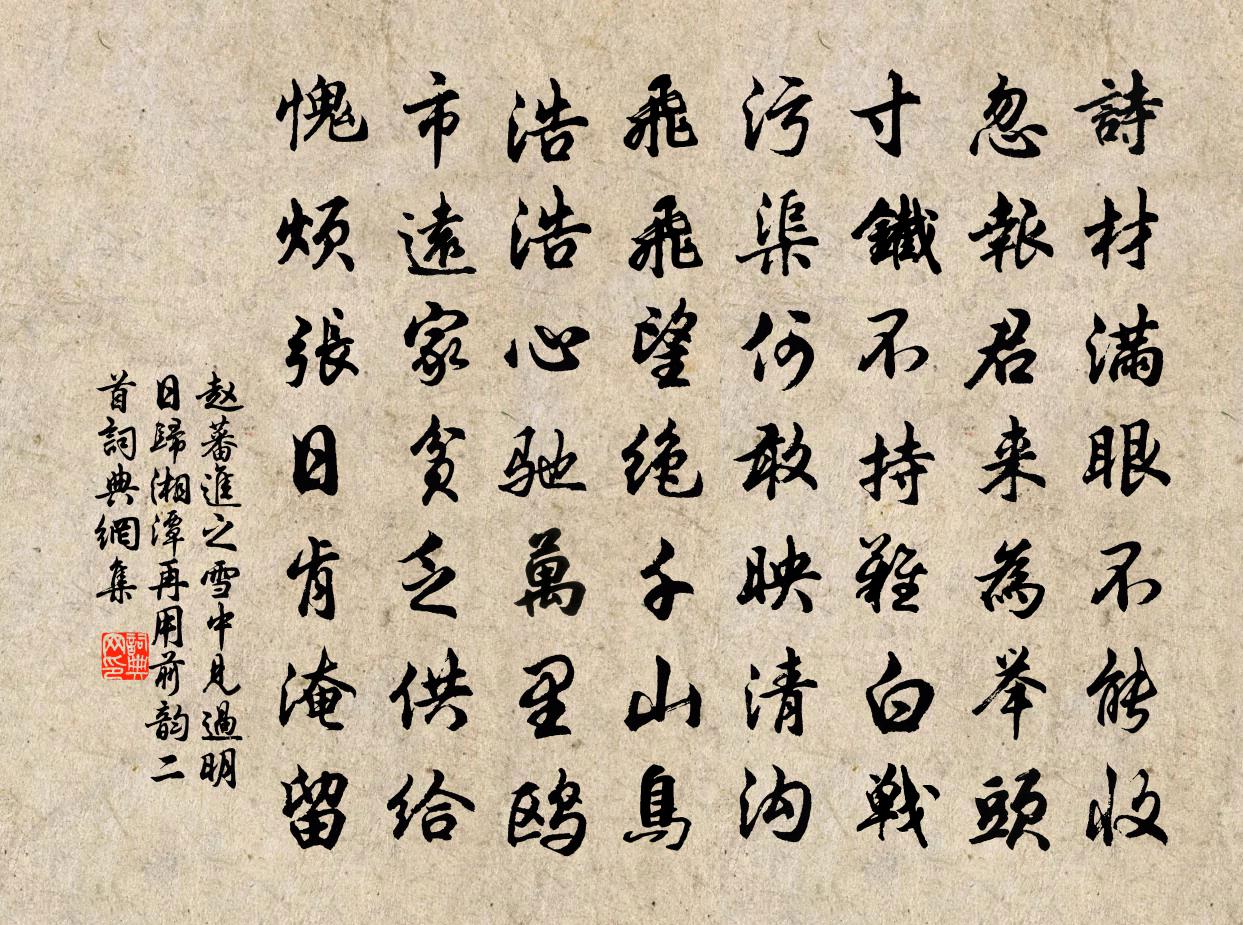 詩材滿眼不能收
忽報君来為举頭
寸鐵不持難白戦
污渠何敢映清沟
飛飛望绝千山鳥
浩浩心馳萬里鸥
市遠家貧乏供给
愧煩張日肯淹留
赵蕃進之雪中見過明
日歸湘潭再用前韵二
首詞典網集